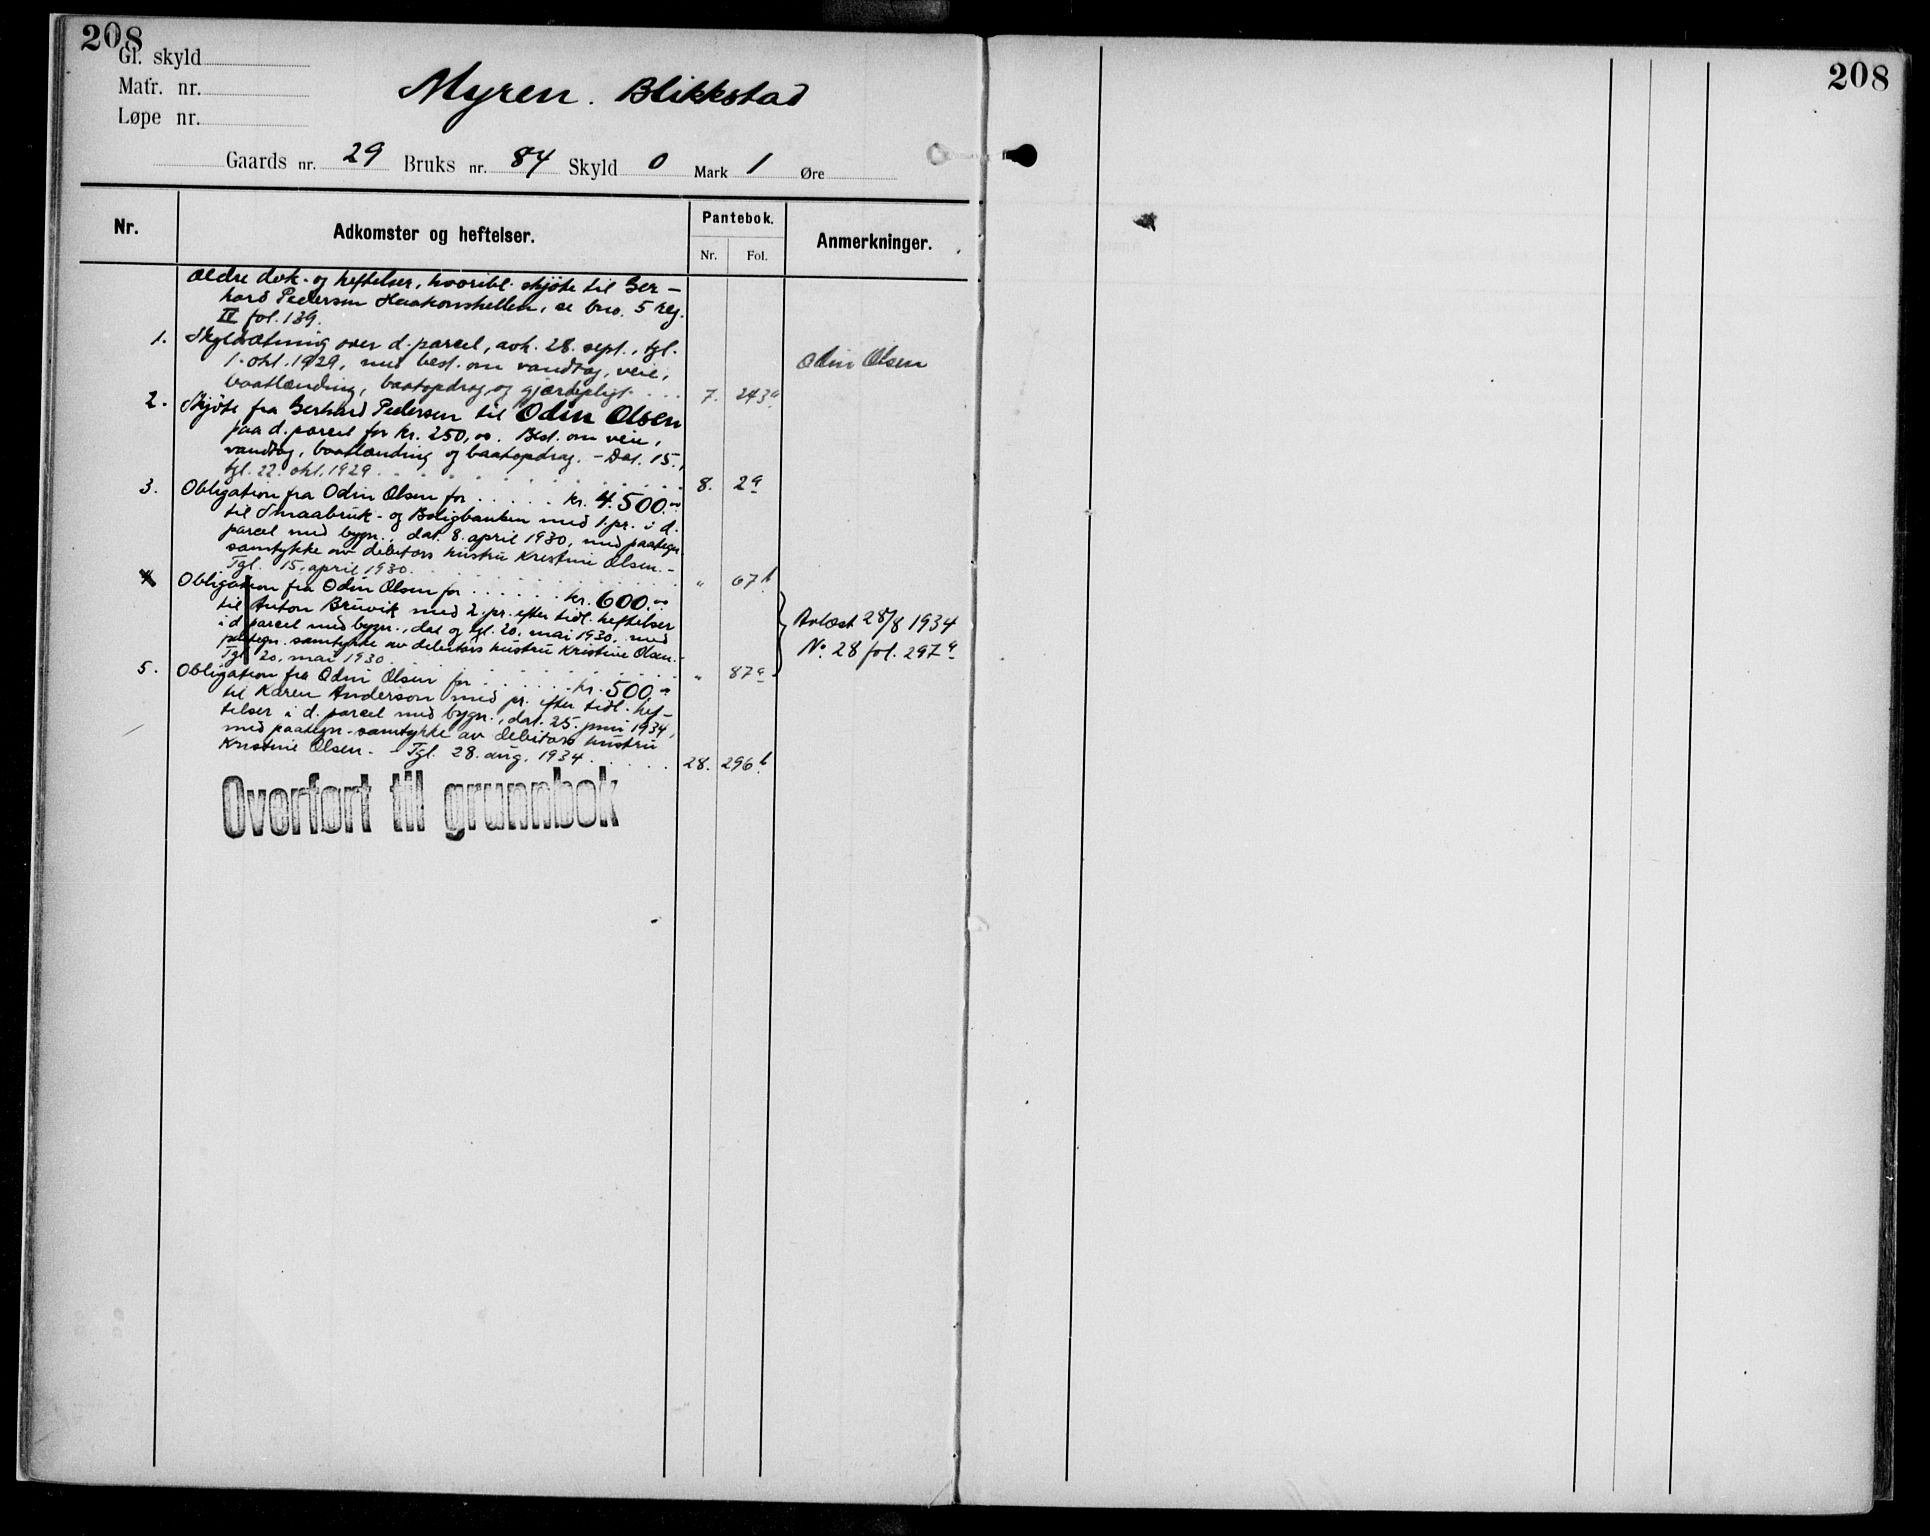 208
208
Gl. skyld
Matr. nr.
Løpe nr.
Myren. Blikkstad
Gaards nr. 29 Bruks nr. 84 Skyld 0 Mark 1 Øre
Nr.
Adkomster og heftelser.
Pantebok.
Nr. Fol.
Anmerkninger.
Ældre dok.- og heftelser, hvoribl. skjöte til Ber-
hard Pedersen Haakonshellen, se bno. 5 reg.
IV fol. 139.
1. Skyldsætning over d. parcel, avh. 28. sept., tgl.
1. okt. 1929, med best. om vandtag, veie,
baatlænding, baatopdrag og gjærdepligt. . . . 7. 243a
Odin Olsen
2. Skjöte fra Berhard Pedersen til Odin Olsen
paa d. parcel for kr. 250,00. Best. om veie,
vandtag, baatlænding og baatopdrag. - Dat. 15.,
tgl. 22. okt. 1929. . . . 8. 2a
3. Obligation fra Odin Olsen for . . . . . kr. 4.500.00
til Smaabruk- og Boligbanken med 1. pr. i d.
parcel med bygn., dat. 8. april 1930, med paategn.
samtykke av debitors hustru Kristine Olsen. -
Tgl. 15. april 1930. . . . " 67b
4 Obligation fra Odin Olsen for . . . . . . kr. 600.00
til Anton Bruvik med 2. pr. efter tidl. heftelser
i d. parcel med bygn., dat og tgl. 20. mai 1930, med
paategn. samtykke av debitors hustru Kristine Olsen. -
Tgl. 20. mai 1930. . . . " 87a
Avlæst 28/8 1934
No. 28 fol. 297a
5. Obligation fra Odin Olsen for . . . . . . kr. 500.00
til Karen Anderson med pr. efter tidl. hef-
telser i d. parcel med bygn., dat. 25. juni 1934,
med paategn. samtykke av debitors hustru
Kristine Olsen. - Tgl. 28. aug. 1934. . . . . 28. 296b
Overført til grunnbok